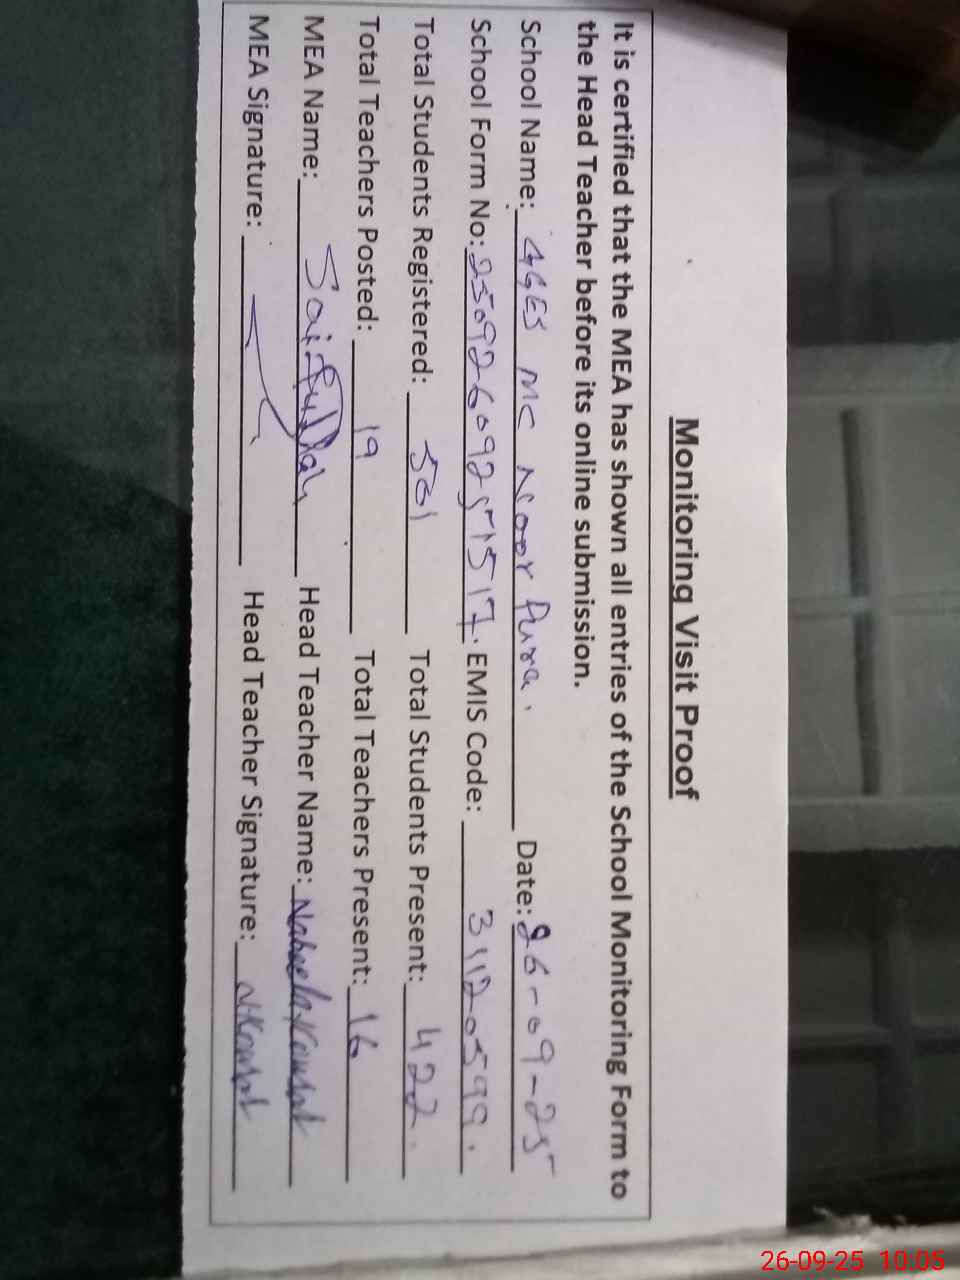 Monitoring Visit Proof
It is certified that the MEA has shown all entries of the School Monitoring Form to
the Head Teacher before its online submission.
School Name: GGES MC Noor Pura. Date: 26-09-25
School Form No: 2509260925151517. EMIS Code: 31120599.
Total Students Registered: 501 Total Students Present: 422.
Total Teachers Posted: 19 Total Teachers Present: 16
MEA Name: Saifullah Head Teacher Name: Nabeela Kousat
MEA Signature: Head Teacher Signature:
26-09-25 10:05